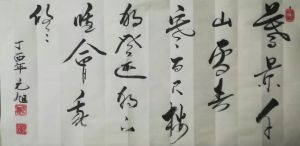 暮景千
山雪春
寒百尺楼
独登还独下
谁会我
悠悠
丁酉年元旭